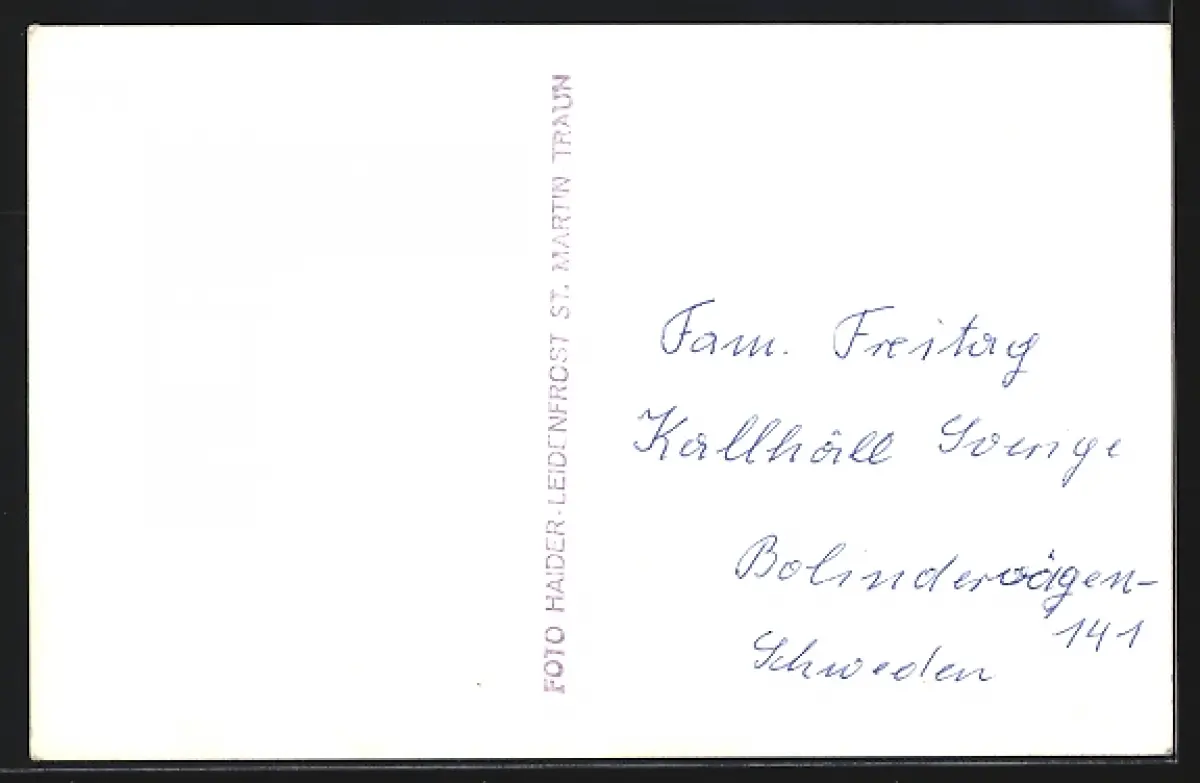 FOTO HAIDER-LEIDENFROST ST. MARTIN TRAUN
Fam. Freitag
Kallhäll Sverige
Bolindervägen-
141
Schweden